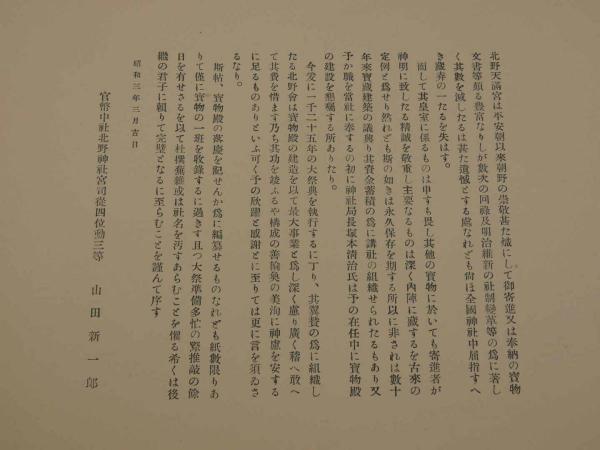 北野天滿宮は平安朝以來朝野の崇敬甚た熾にして御寄進又は奉納の寶物
文書等頗る豊富なりしが數次の回祿及明治維新の社制變革等の爲に著し
く其數を減したるは甚た遺憾とする處なれども尙ほ全國神社中屈指すへ
き藏弆の一たるを失はす。
而して其皇室に係るものは申すも畏し其他の寶物に於いても寄進者が
神明に致したる精誠を敬重し主要なるものは深く內陣に藏するを古來の
定例と爲せり然れとも斯の如きは永久保存を期する所以に非されは數十
年來寶藏建築の議興り其資金蓄積の爲に講社の組織せられたるもあり又
予か職を當社に奉するの初に神社局長塚本淸治氏は予の在任中に寶物殿
の建設を懇囑する所ありたり。
今茲に一千二十五年の大祭典を執行するに丁り、其翼贊の爲に組織し
たる北野會は寶物殿の建造を以て最大事業と爲し深く慮り廣く稽へ敢へ
て其資を惜ます乃ち其功を竣ふるや構成の善輪奐の美洵に神慮を安する
に足るものありといふ可く予の欣躍と感謝とに至りては更に言を須ゐさ
るなり。
斯帖、寶物殿の落慶を記せんか爲に編纂せるものなれども紙數限りあ
りて僅に寶物の一班を收錄するに過きす且つ大祭準備多忙の際推敲の餘
日を有せさるを以て杜撰蕪雜或は社名を汚すあらむことを懼る希くは後
繼の君子に賴りて完璧となるに至らむことを謹んて序す
昭和三年三月吉日
官幣中社北野神社宮司從四位勳三等 山田新一郞